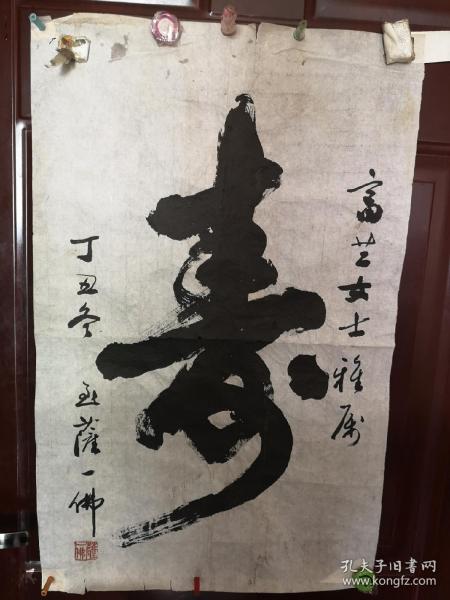 富芝女士雅属
寿
丁丑冬 薩一佛
孔夫子旧书网
www.kongfz.com